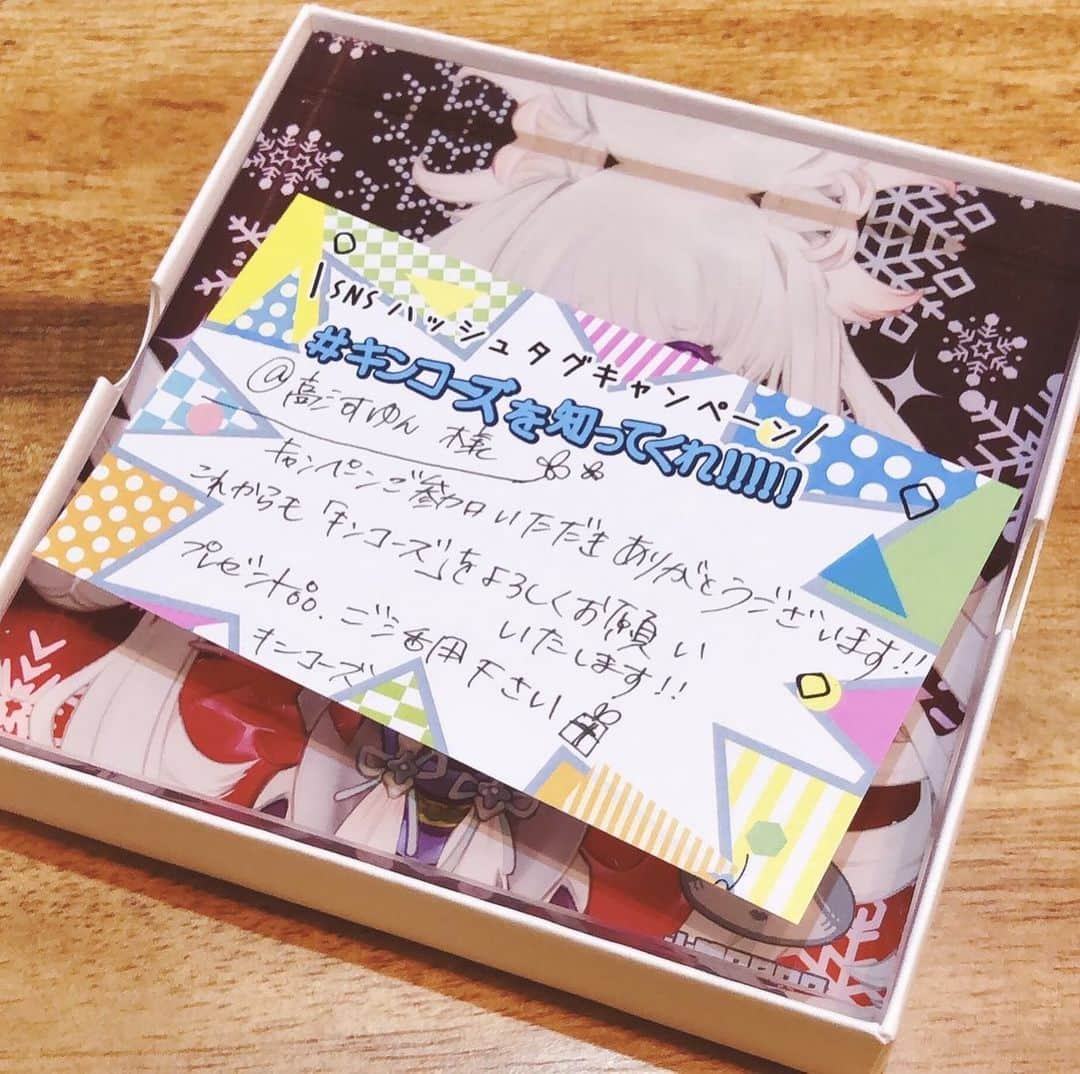 \SNSハッシュタグキャンペーン/
#キンコーズを知ってくれ!!!!!
@高河ゆん 様
キャンペンご参加いただき ありがとうございます!!
これからも「キンコーズ」をよろしくお願い
いたします!!
プレゼント品、ご活用下さい
キンコーズ